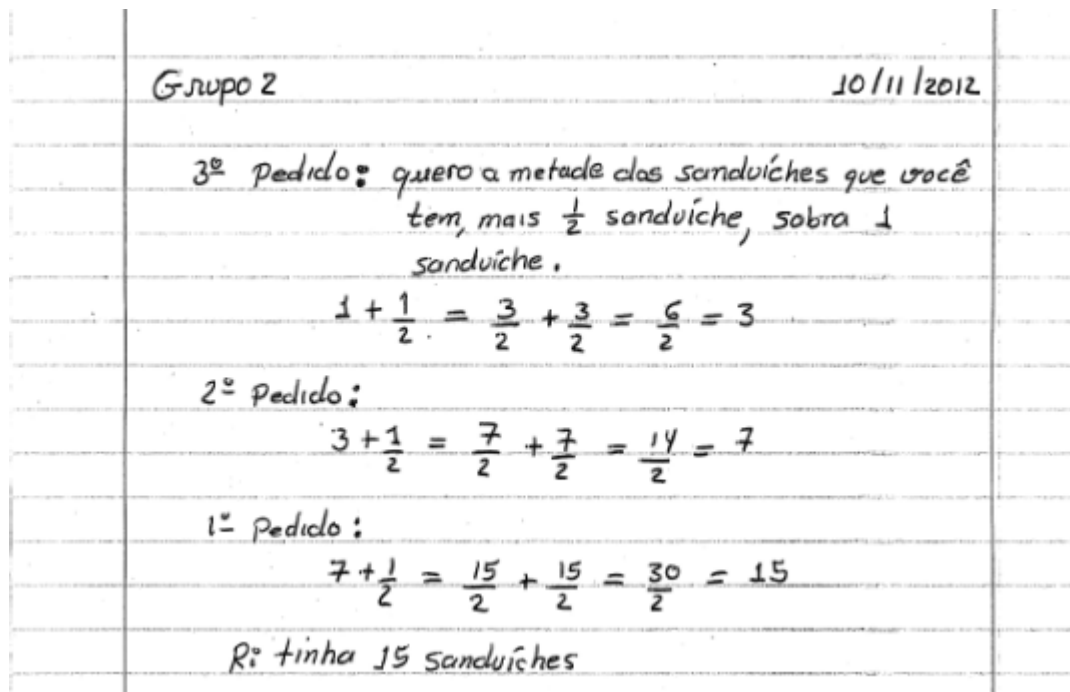 Grupo 2 10/11/2012
3º Pedido: quero a metade dos sanduíches que você
tem, mais 1/2 sanduíche, sobra 1
sanduíche.
1 + 1/2 = 3/2 + 3/2 = 6/2 = 3
2º Pedido:
3 + 1/2 = 7/2 + 7/2 = 14/2 = 7
1º Pedido:
7 + 1/2 = 15/2 + 15/2 = 30/2 = 15
R: tinha 15 sanduíches